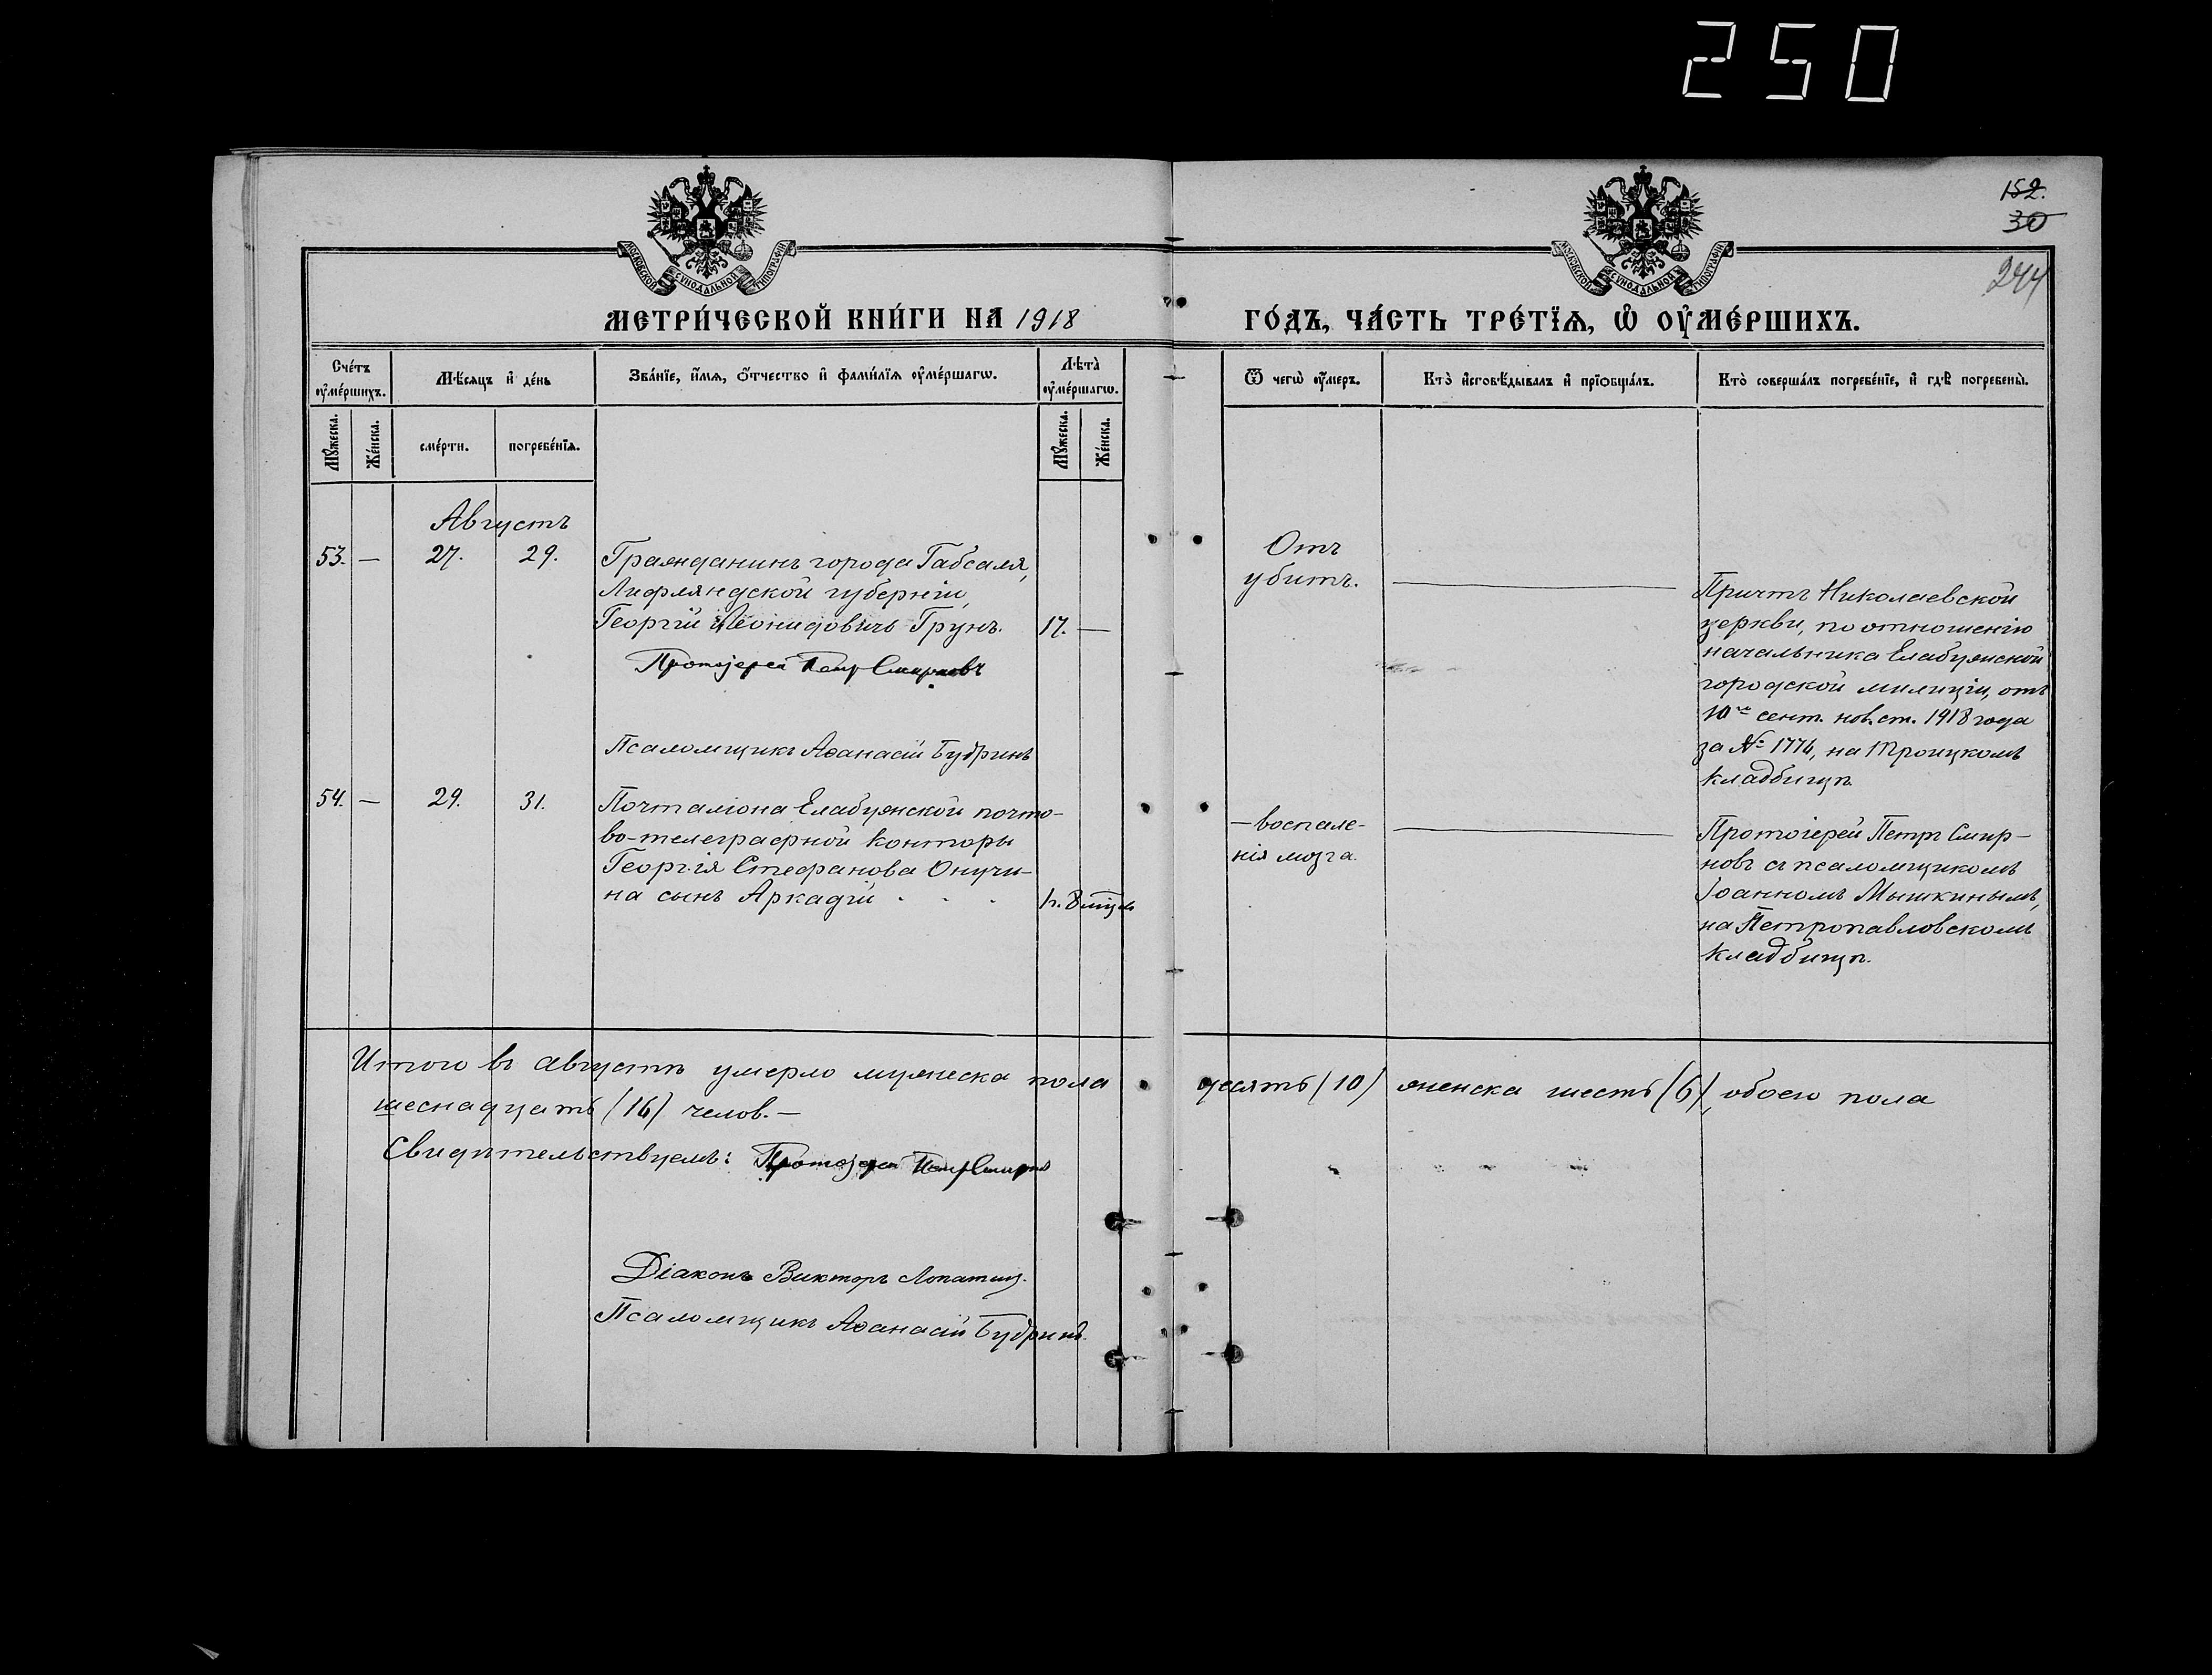 250
152.
30
244
МОСКОВСКОЙ СѴНОДАЛЬНОЙ ТИПОГРАФІИ
МОСКОВСКОЙ СѴНОДАЛЬНОЙ ТИПОГРАФІИ
МЕТРИ́ЧЕСКОЙ КНИ́ГИ НА 1918
ГО́ДЪ, ЧА́СТЬ ТРЕ́ТЇѦ, Ѡ҆ ОУ҆МЕ́РШИХЪ.
Сче́тъ оу҆ме́ршихъ.
Мѣ́сяцъ и҆ де́нь
Зва́нїе, и҆́мѧ, ѻ҆́тчество и҆ фами́лїѧ оу҆ме́ршагѡ.
Лѣта̀ оу҆ме́ршагѡ.
Ѿ чегѡ̀ оу҆́меръ.
Кто̀ и҆сповѣ́дывалъ и҆ прїѡбща́лъ.
Кто̀ соверша́лъ погребе́нїе, и҆ гдѣ̀ погребены̀.
Мꙋ́жеска.
Же́нска.
сме́рти.
погребе́нїѧ.
Мꙋ́жеска.
Же́нска.
Августъ
53. — 27. 29.
Гражданинъ города Габсаля,
Лифляндской губерніи,
Георгій Леонидовичъ Грунъ. 17. —
Протоіерей Петр Смирновъ
Псаломщикъ Аѳанасій Бубринъ
Отъ
убитъ.
Причтъ Николаевской
церкви, по отношенію
начальника Елабужской
городской милиціи, отъ
10го сент. нов. ст. 1918 года
за № 1774, на Троицкомъ
кладбищѣ.
54. — 29. 31.
Почталіона Елабужской почто-
во-телеграфной конторы
Георгія Стефанова Онучи-
на сынъ Аркадій . . . 1 г. 8 мѣц.
— воспале-
нія мозга.
Протоіерей Петръ Смир-
новъ съ псаломщикомъ
Іоанномъ Мышкинымъ,
на Петропавловскомъ
кладбищѣ.
Итого въ августѣ умерло мужеска пола десять (10) женска шесть (6), обоего пола
шеснадцать (16) челов. —
Свидѣтельствуемъ: Протоіерей Петр Смирнов
Діаконъ Викторъ Лопатин.
Псаломщикъ Аѳанасій Бубринъ.